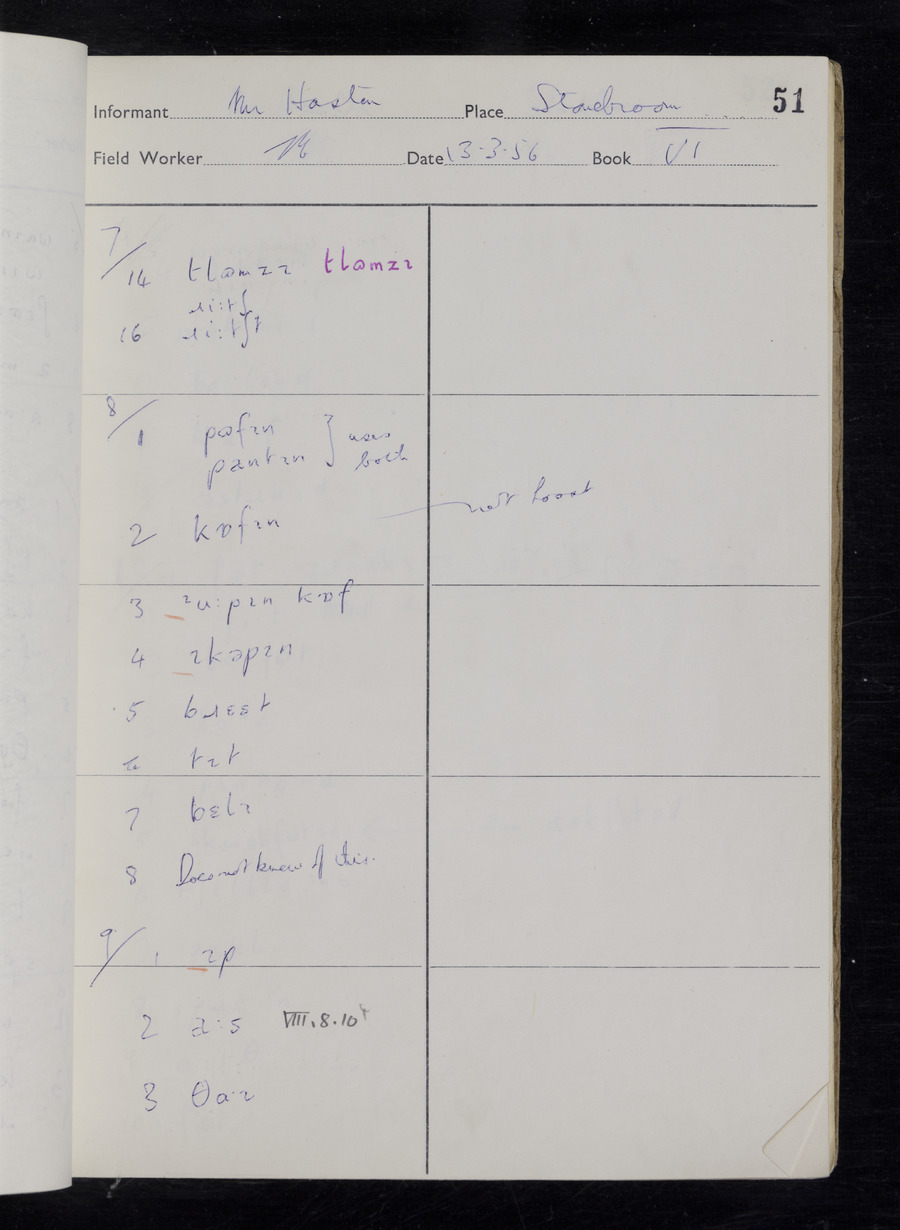 Informant Mr Hasten Place Stonebroom 51
Field Worker Date 13-3-56 Book VI
7/14 tlɒmzɪ tlɒmzɪ
ɹi:tʃ
16 ɹi:tʃt
8/1 pɒfɪn } uses
pantɪn both
2 kɒfɪn not hoost
3 u:pɪn kɒf
4 ɪkɒpɪn
5 bɹɛɛt
6 tɪt
7 bɛlɪ
8 Does not know of this.
9/1 ɪp
2 a:s VIII.8.10
3 θa:ɪ